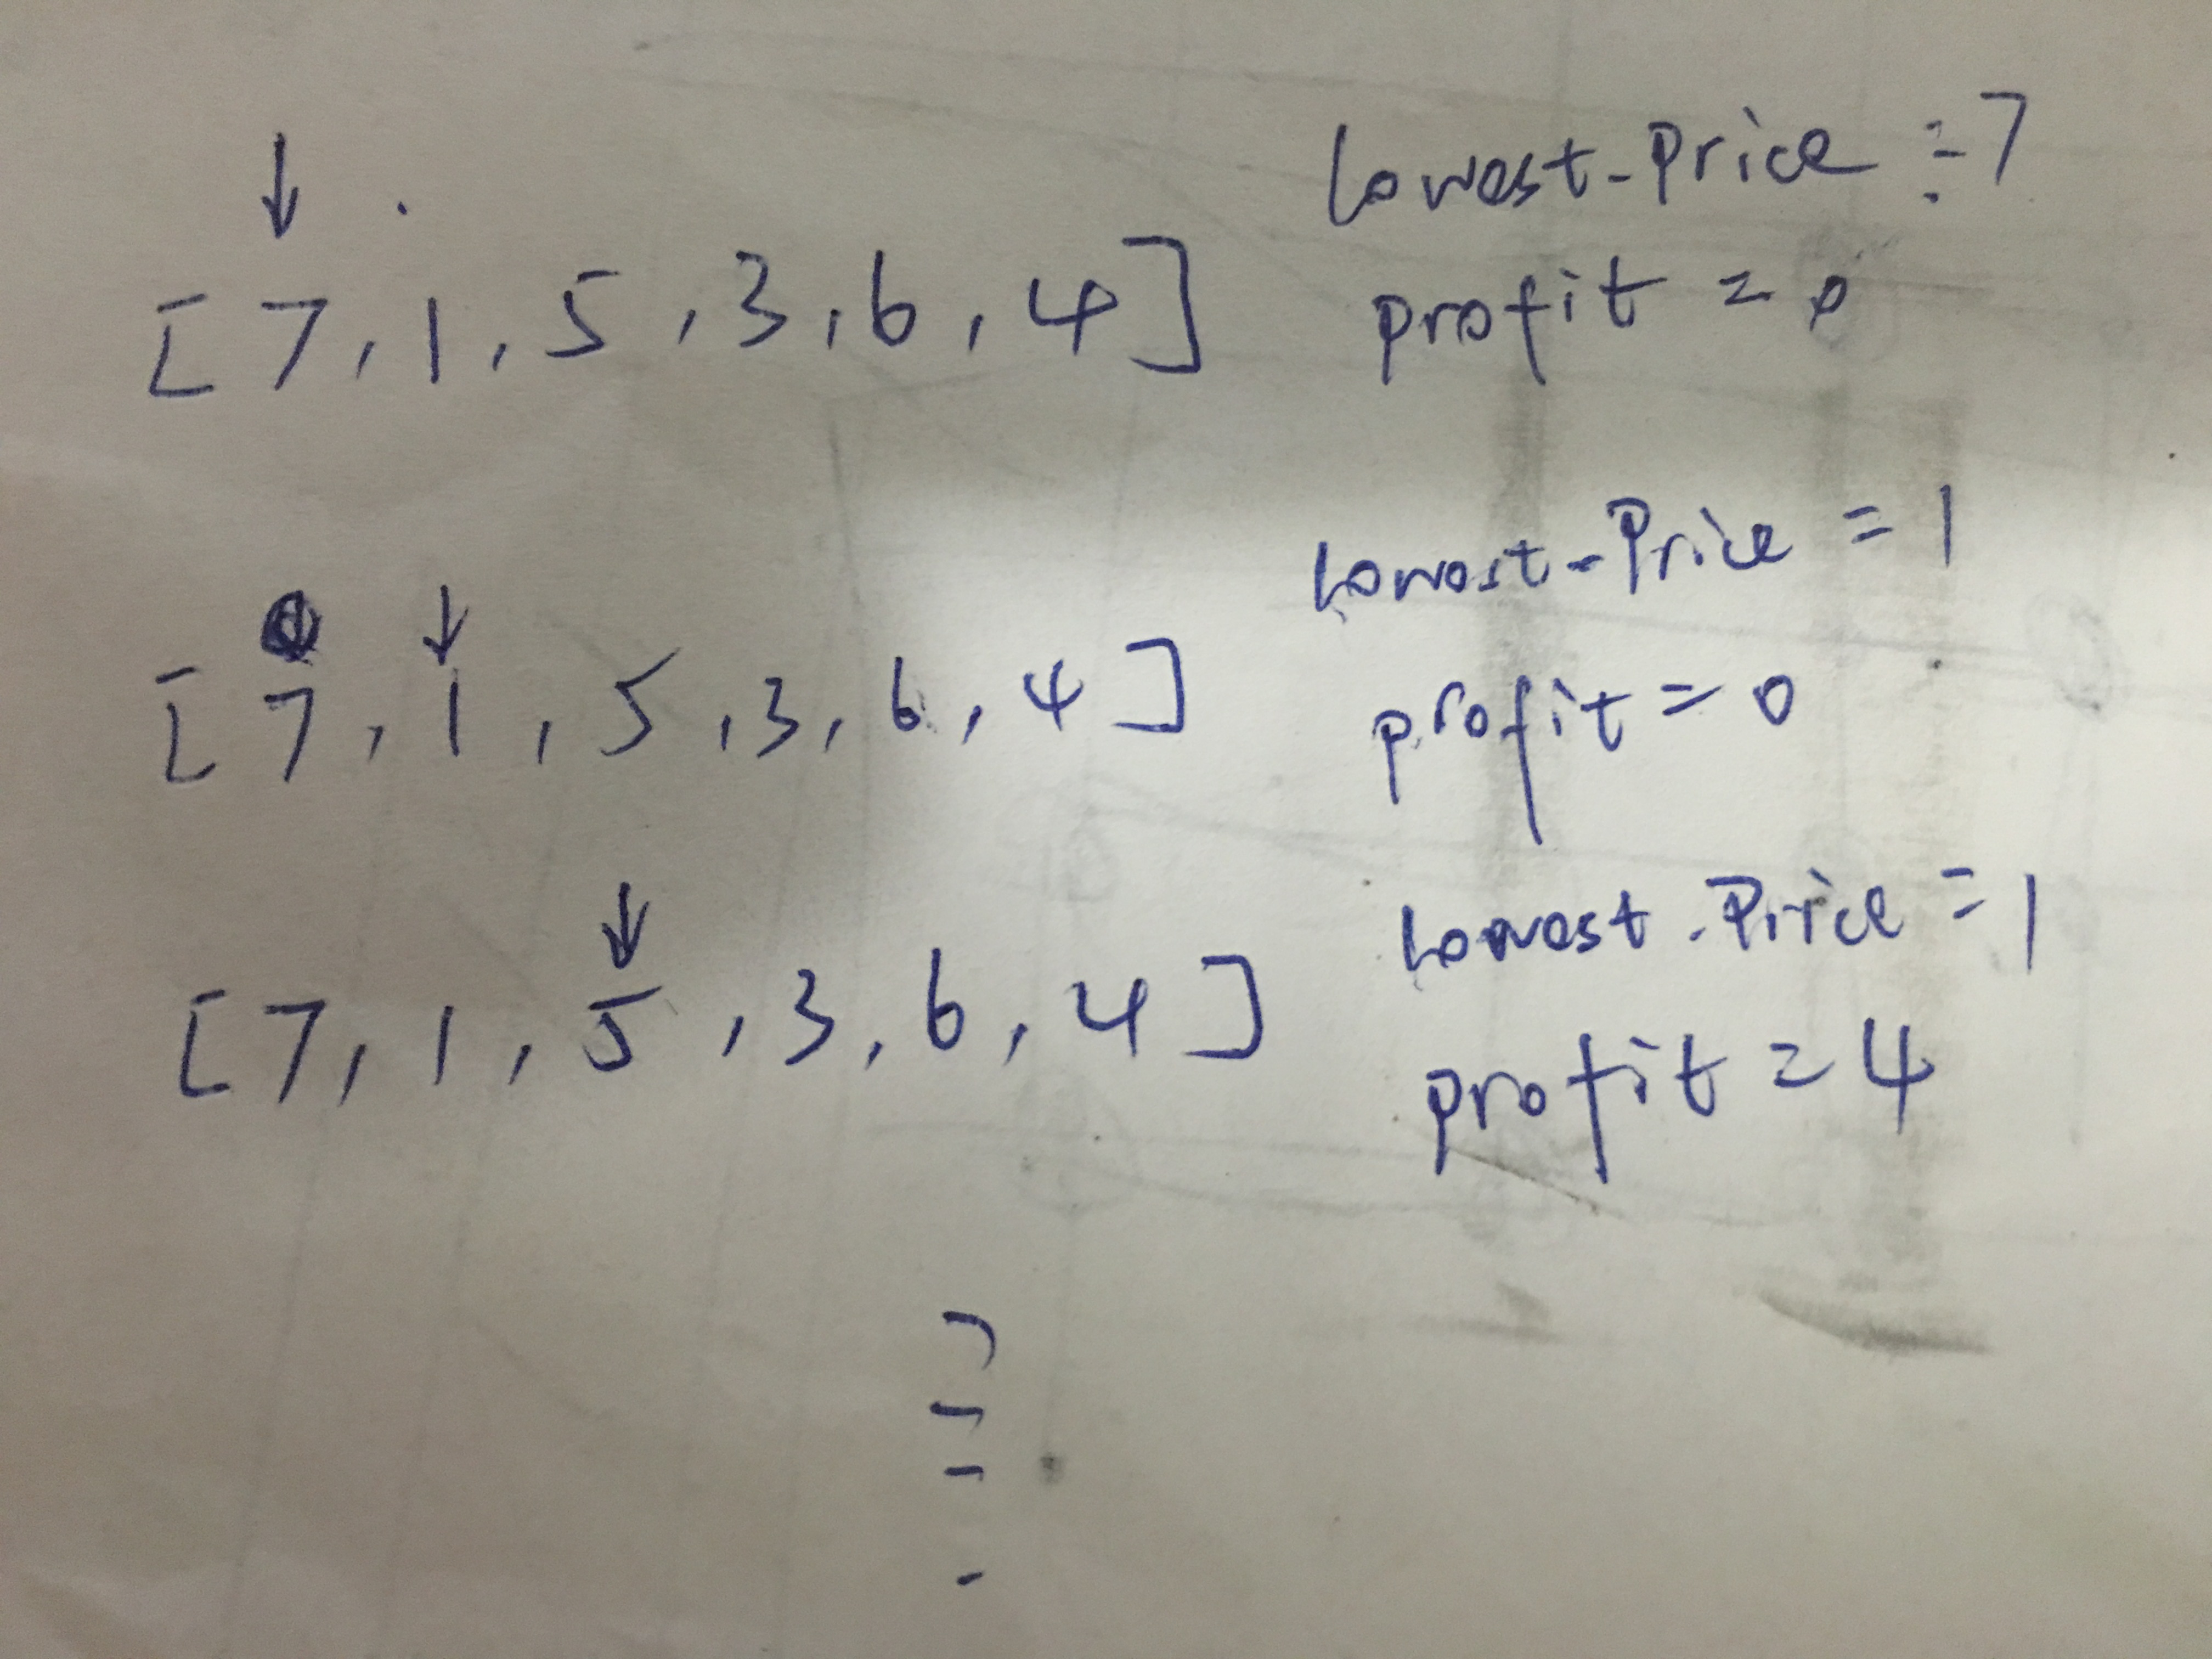 ↓
[7, 1, 5, 3, 6, 4] lowest-Price = 7
profit = 0
↓
[7, 1, 5, 3, 6, 4] lowest-Price = 1
profit = 0
↓
[7, 1, 5, 3, 6, 4] lowest-Price = 1
profit = 4